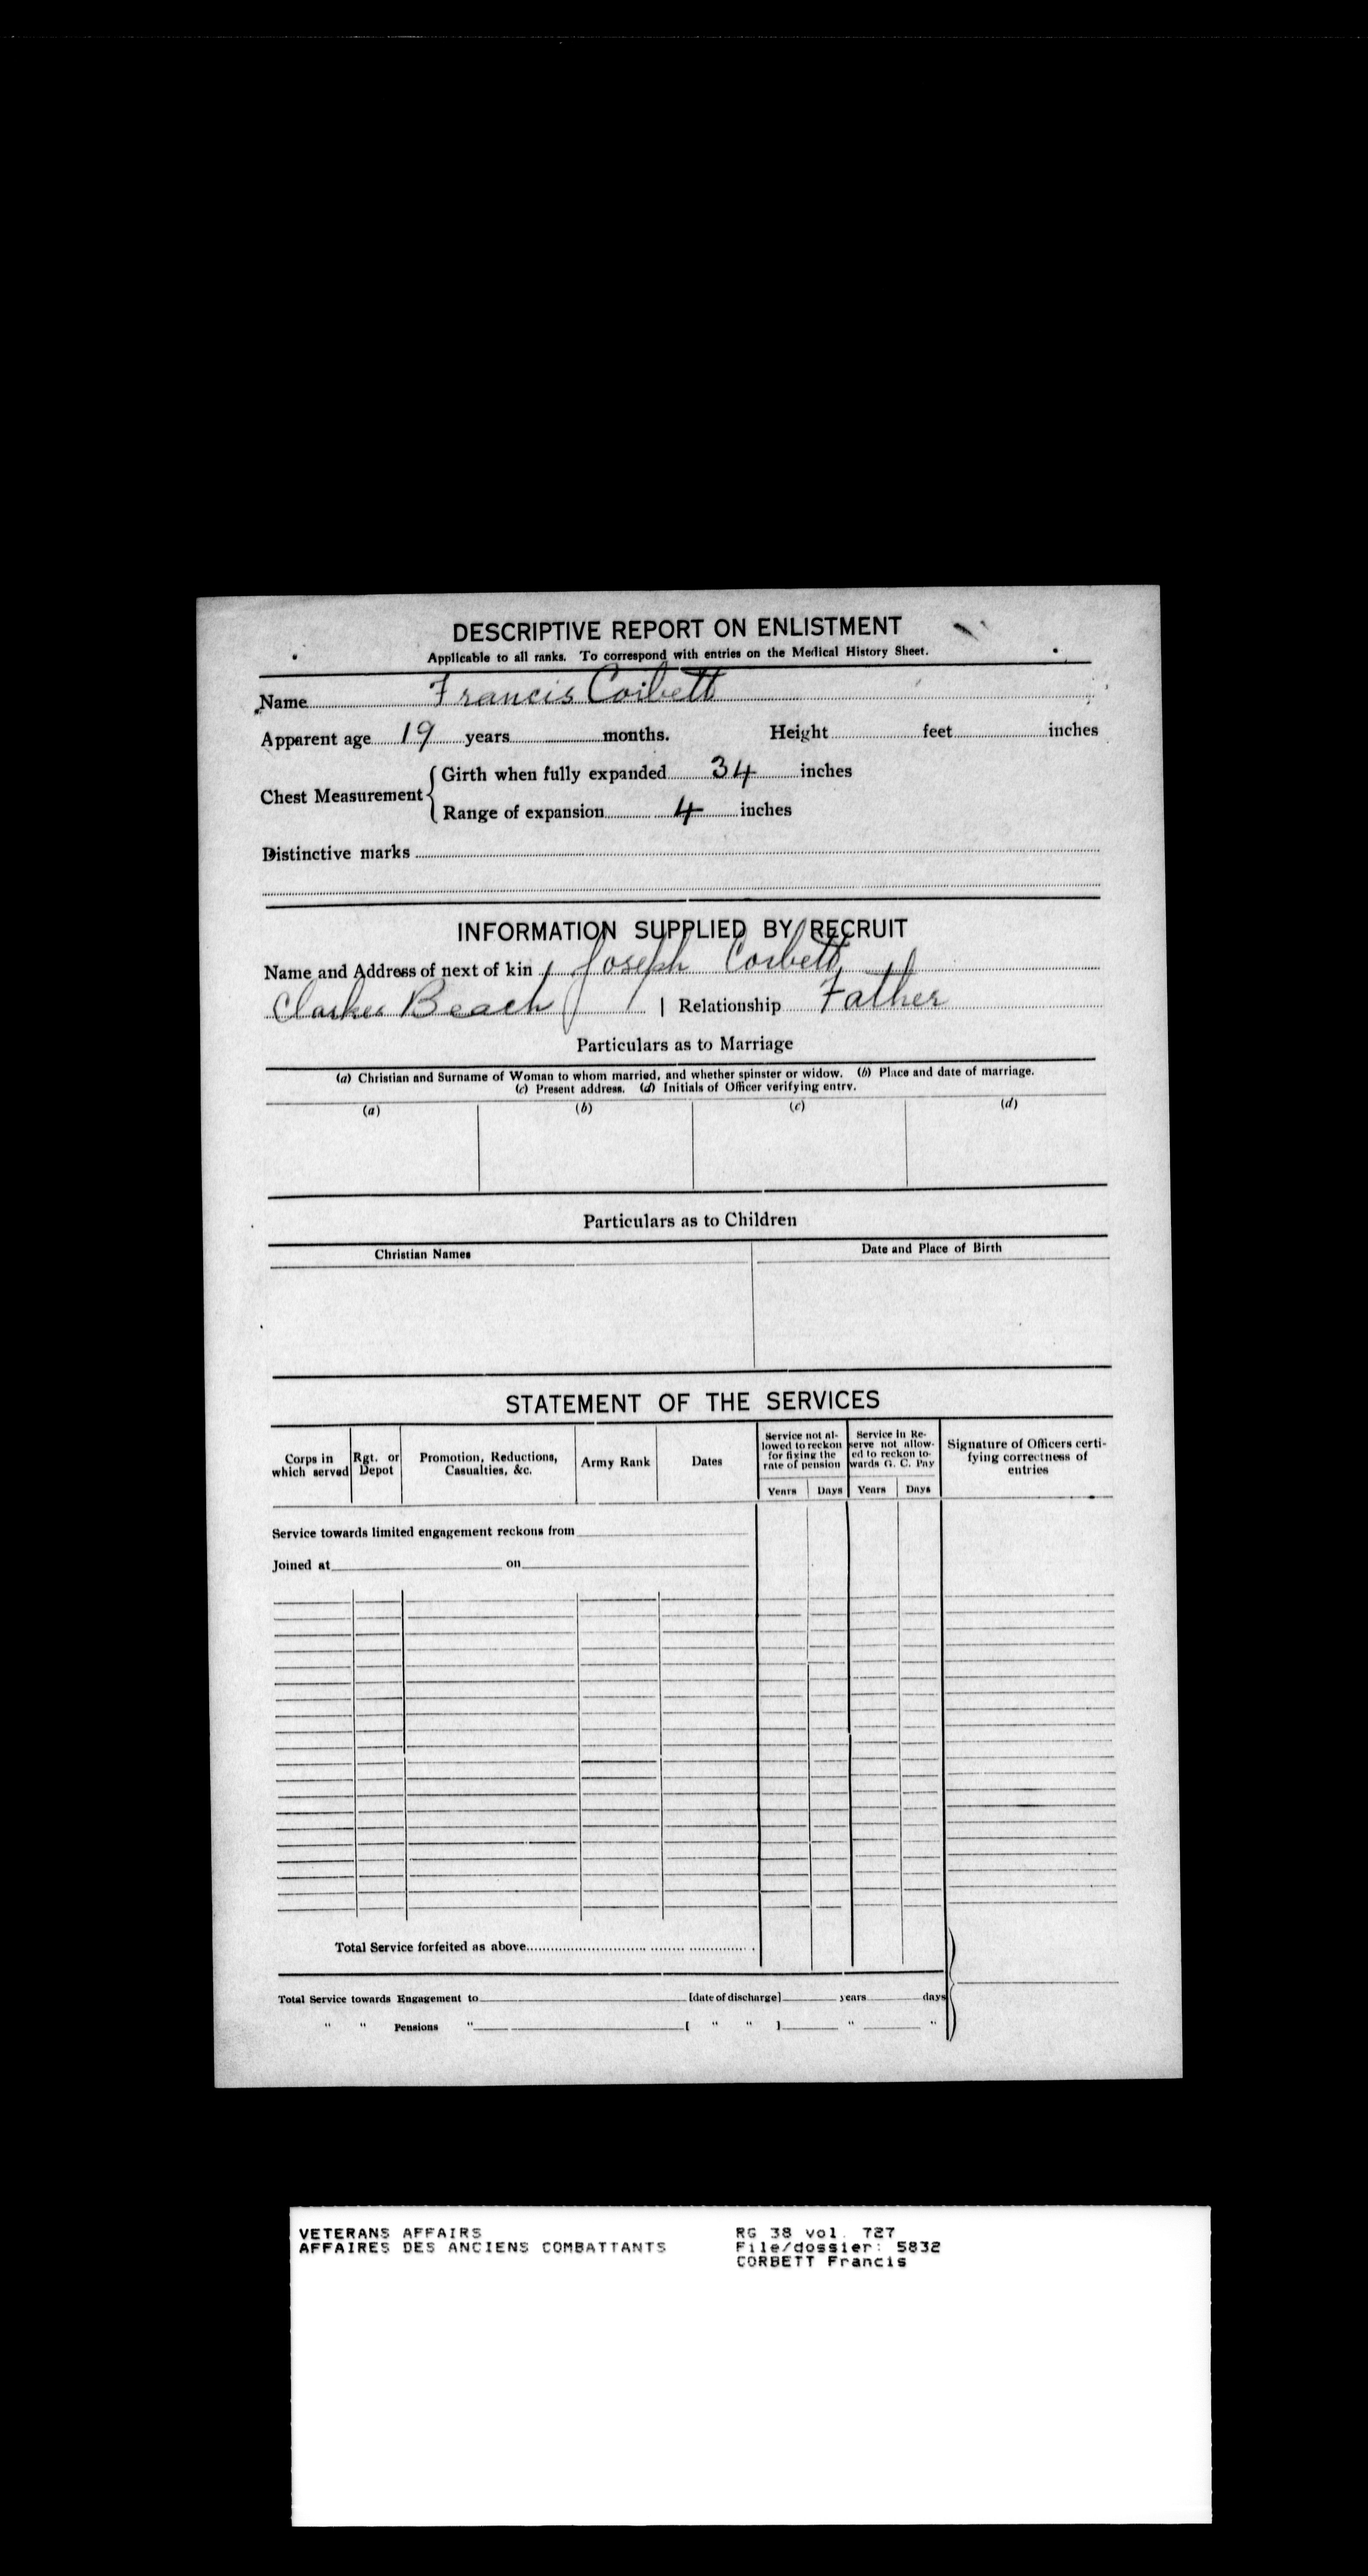 DESCRIPTIVE REPORT ON ENLISTMENT
Applicable to all ranks. To correspond with entries on the Medical History Sheet.
Name Francis Corbett
Apparent age 19 years months. Height feet inches
Chest Measurement { Girth when fully expanded 34 inches
Range of expansion 4 inches
Distinctive marks
INFORMATION SUPPLIED BY RECRUIT
Name and Address of next of kin Joseph Corbett
Clarkes Beach | Relationship Father
Particulars as to Marriage
(a) Christian and Surname of Woman to whom married, and whether spinster or widow. (b) Place and date of marriage.
(c) Present address. (d) Initials of Officer verifying entry.
(a) (b) (c) (d)
Particulars as to Children
Christian Names Date and Place of Birth
STATEMENT OF THE SERVICES
Corps in which served
Rgt. or Depot
Promotion, Reductions, Casualties, &c.
Army Rank
Dates
Service not allowed to reckon for fixing the rate of pension
Service in Reserve not allowed to reckon towards G. C. Pay
Signature of Officers certifying correctness of entries
Years Days Years Days
Service towards limited engagement reckons from
Joined at on
Total Service forfeited as above
Total Service towards Engagement to [date of discharge] years days
" " Pensions " [ " " ] " "
VETERANS AFFAIRS
AFFAIRES DES ANCIENS COMBATTANTS
RG 38 vol. 727
File/dossier: 5832
CORBETT Francis